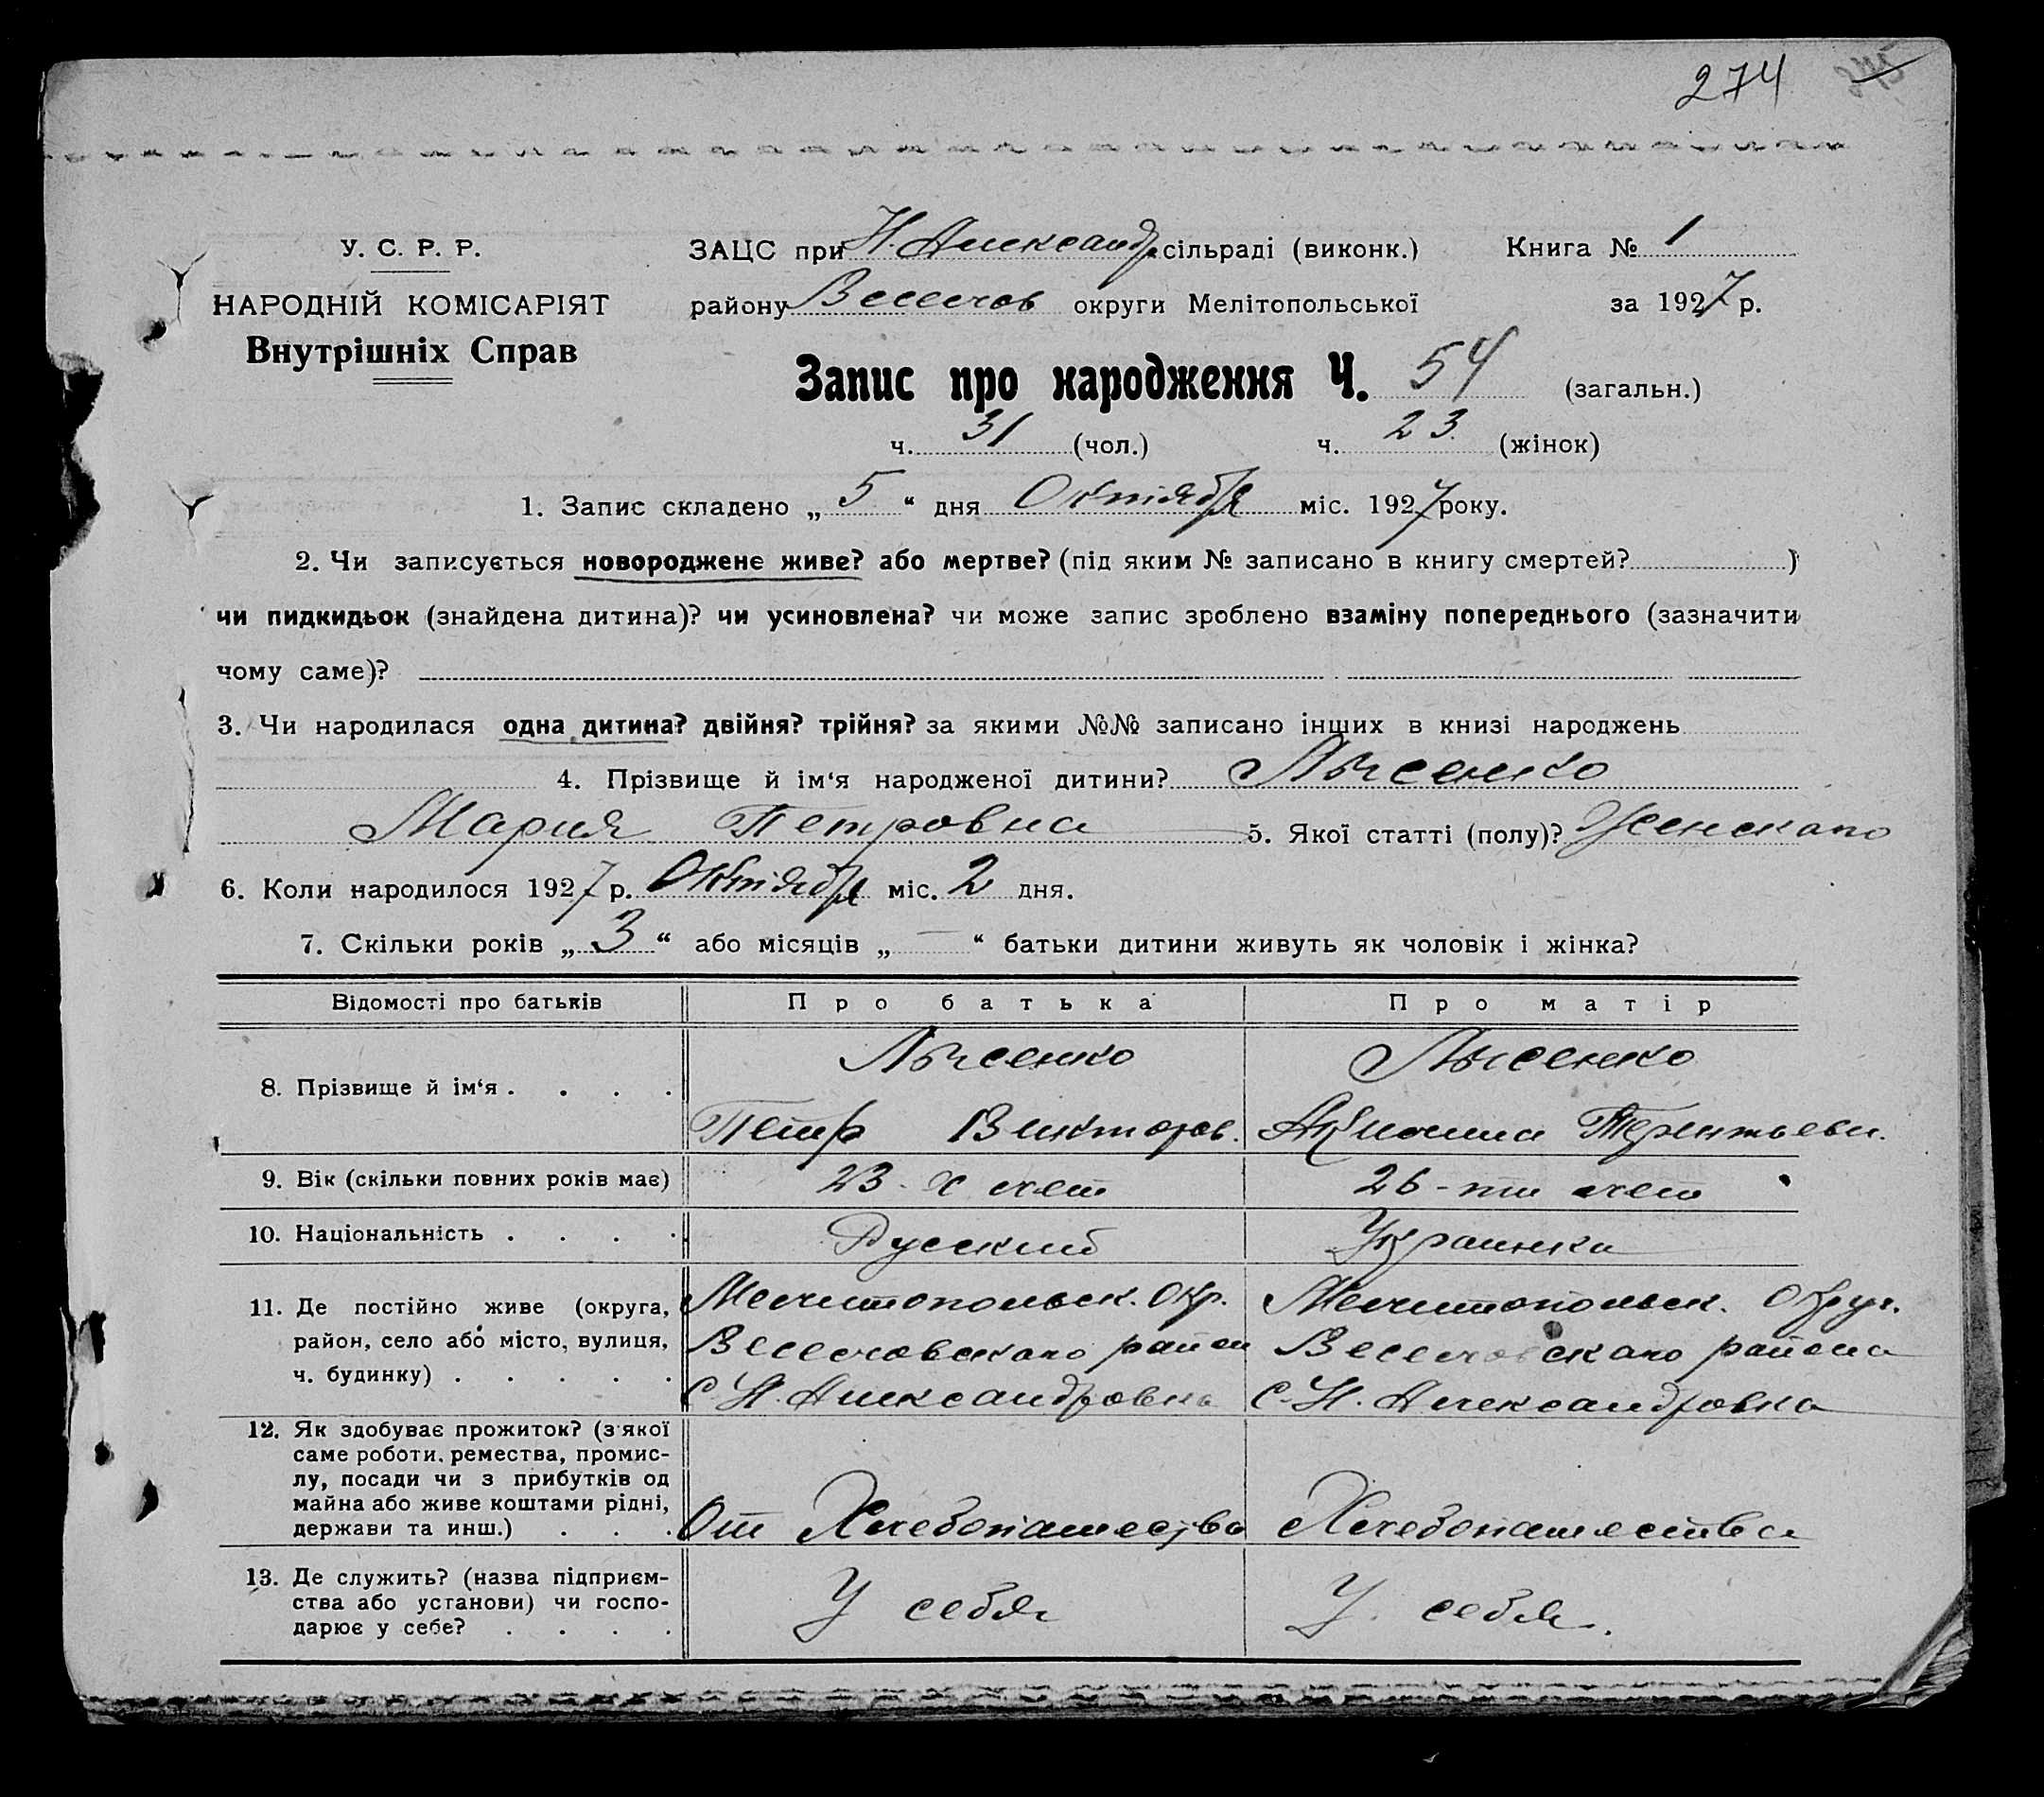 274
У. С. Р. Р.
НАРОДНІЙ КОМІСАРІЯТ
Внутрішніх Справ
ЗАЦС при Н. Александр. сільраді (виконк.) Книга № 1
району Веселов округи Мелітопольської за 1927 р.
Запис про народження Ч. 54 (загальн.)
ч. 31 (чол.) ч. 23. (жінок)
1. Запис складено „ 5 “ дня Октября міс. 1927 року.
2. Чи записується новороджене живе? або мертве? (під яким № записано в книгу смертей? )
чи пидкидьок (знайдена дитина)? чи усиновлена? чи може запис зроблено взаміну попереднього (зазначити
чому саме)?
3. Чи народилася одна дитина? двійня? трійня? за якими №№ записано інших в книзі народжень
4. Прізвище й ім‘я народженої дитини? Лысенко
Мария Петровна 5. Якої статті (полу)? Женскаго
6. Коли народилося 1927 р. Октября міс. 2 дня.
7. Скільки років „ 3 “ або місяців „ — “ батьки дитини живуть як чоловік і жінка?
Відомості про батьків Про батька Про матір
8. Прізвище й ім‘я . . . . Лысенко Лысенко
Петр Викторов. Акилина Терентьевн.
9. Вік (скільки повних років має) 23-х лет 26-ти лет
10. Національність . . . . Русский Украинка
11. Де постійно живе (округа, Мелитопольск. Окр. Мелитопольск. Округ.
район, село або місто, вулиця, Веселовскаго район Веселовскаго района
ч. будинку) . . . . . С. Н. Александровка С. Н. Александровка
12. Як здобуває прожиток? (з якої
саме роботи, ремества, промис-
лу, посади чи з прибутків од
майна або живе коштами рідні,
держави та инш.) . . . От Хлебопашества Хлебопашества
13. Де служить? (назва підприєм-
ства або установи) чи госпо- У себя У себя.
дарює у себе? . . . .